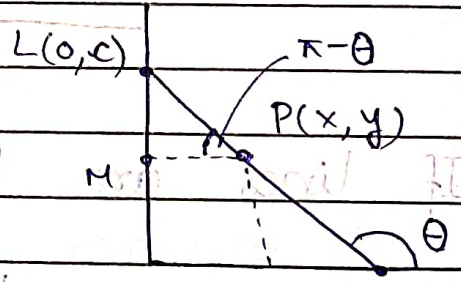 L(0,c)
π-θ
P(x,y)
M
θ